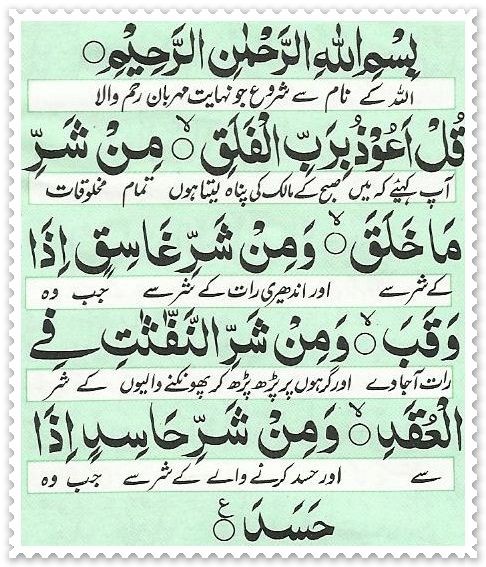 بِسْمِ اللهِ الرَّحْمٰنِ الرَّحِيْمِ ○
اللہ کے نام سے شروع جو نہایت مہربان رحم والا
قُلْ اَعُوْذُ بِرَبِّ الْفَلَقِ ۙ○ مِنْ شَرِّ
آپ کہئے کہ میں صبح کے مالک کی پناہ لیتا ہوں تمام مخلوقات
مَا خَلَقَ ۙ○ وَمِنْ شَرِّ غَاسِقٍ اِذَا
کے شر سے اور اندھیری رات کے شر سے جب وہ
وَقَبَ ۙ○ وَمِنْ شَرِّ النَّفّٰثٰتِ فِے
رات آجاوے اور گرہوں پر پڑھ پڑھ کر پھونکنے والیوں کے شر
الْعُقَدِ ۙ○ وَمِنْ شَرِّ حَاسِدٍ اِذَا
سے اور حسد کرنے والے کے شر سے جب وہ
حَسَدَ ○ ع